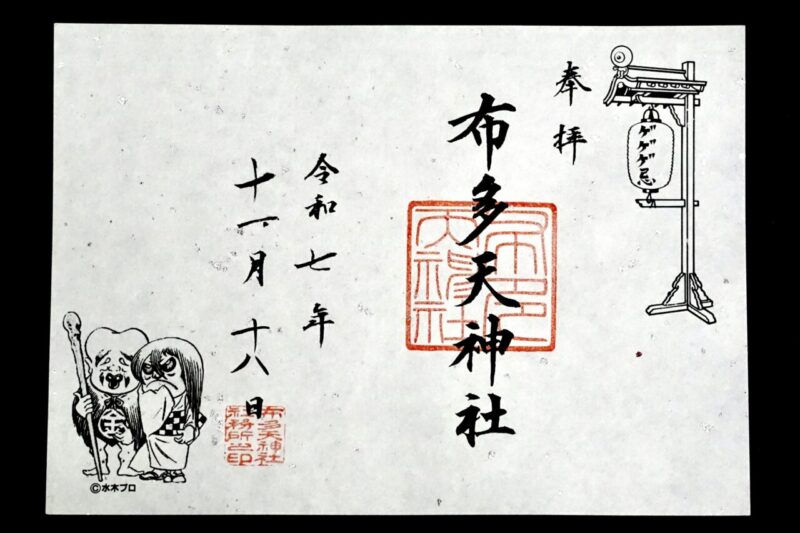 奉拝
ゲゲゲ忌
布多天神社
令和七年
十一月十八日
布多天神社
社務所之印
金
©水木プロ